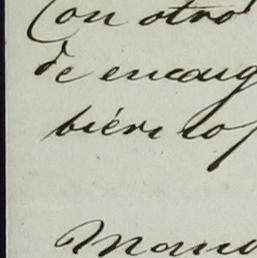 Con otro
de encarg
biérno
Manu